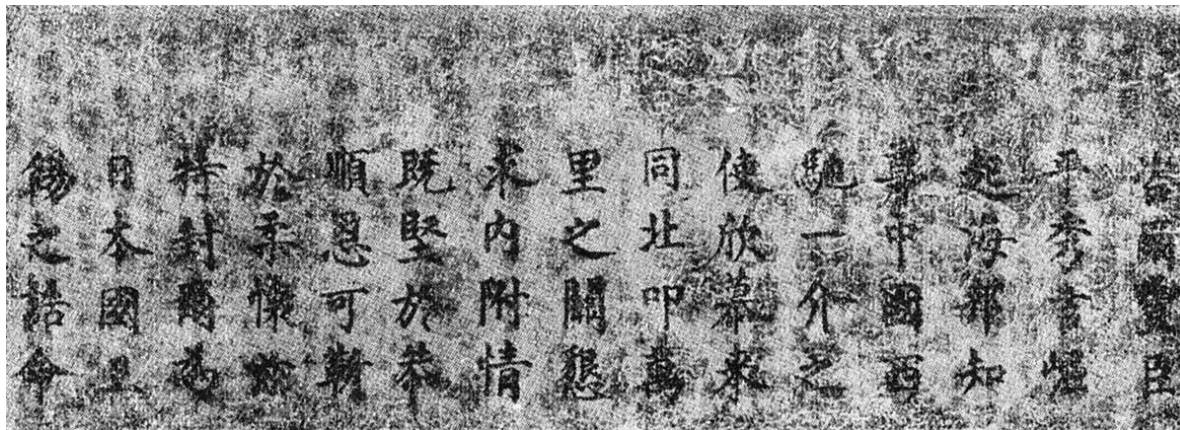 咨爾豐臣
平秀吉崛
起海邦知
尊中國西
馳一介之
使欣慕來
同北叩萬
里之關懇
求內附情
既堅於恭
順恩可靳
於柔懷茲
特封爾爲
日本國王
錫之誥命